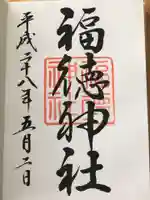 福徳神社
平成二十八年五月二日